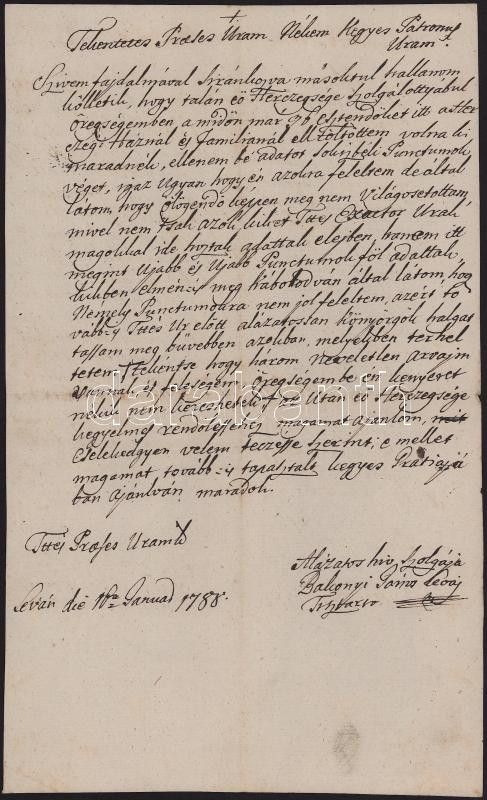 Tekentetes Præses Uram Nékem Kegyes Patronus
Uram!
Szivem fajdalmával Siránkozva másoktul hallanom
kölletik, hogy talán eö Herczegsége Szolgálottyabul
Öregségemben, a midön mar 36 esztendöket itt a Her
czegi Háznál és Familianál el töltöttem volna ki
maradnék, ellenem bé adatot Punctumok
véget, igaz Ugyan hogy én azokra feleltem de által
látom, hogy elögendö képpen meg nem Világosetottam,
mivel nem tsak azok, kiket Tttes Exactor Urak
magokkal ide hoztak, adattak elejben, hanem itt
megint Ujabb és Ujabb Punctumok föl adattak,
kikben elmém is meg háborodván által látom, hog
Némely Punctumokra nem jol feleltem, azért to
vább is Tttes Ur elött alázatossan könyörgök halgat
tassam meg büvebben azokban, melyekben terhel
tetem. Tekéntse hogy három Neveletlen arvajm
vannak és feleségem, Öregségemte én kenyeret
nékik nem kereshetek Után eö Herczegsége
kegyelmes rendölésehez magamat ajanlom,
Cselekedgyen velem teczésse szerint, e mellet
magamat tovább is tapasztalt kegyes Pratiajá
ban ajánlván maradok.
Tttes Præses Uramk
Alázatos hiv Szolgája
Bakonyi Janos Lévaj
Tiszttarto
Léván die 16a Januar 1788.
darabanth